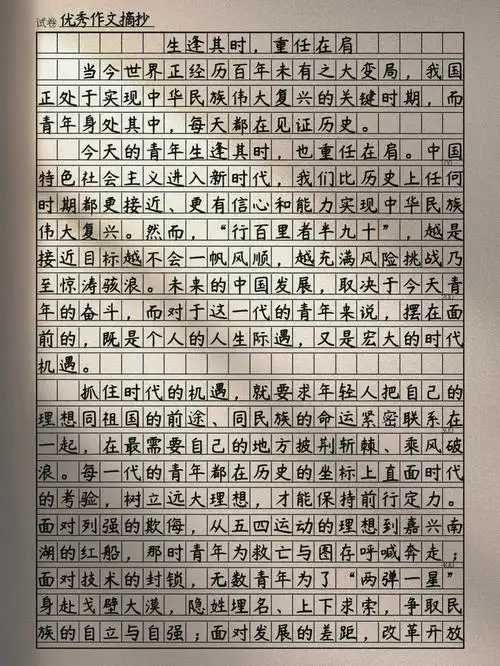 试卷 优秀作文摘抄
生逢其时，重任在肩
当今世界正经历百年未有之大变局，我国
正处于实现中华民族伟大复兴的关键时期，而
青年身处其中，每天都在见证历史。
今天的青年生逢其时，也重任在肩。中国
100
特色社会主义进入新时代，我们比历史上任何
时期都更接近、更有信心和能力实现中华民族
伟大复兴。然而，“行百里者半九十”，越是
接近目标越不会一帆风顺，越充满风险挑战乃
至惊涛骇浪。未来的中国发展，取决于今天青
200
年的奋斗，而对于这一代的青年来说，摆在面
前的，既是个人的人生际遇，又是宏大的时代
机遇。
抓住时代的机遇，就要求年轻人把自己的
理想同祖国的前途、同民族的命运紧密联系在
300
一起，在最需要自己的地方披荆斩棘、乘风破
浪。每一代的青年都在历史的坐标上直面时代
的考验，树立远大理想，才能保持前行定力。
面对列强的欺侮，从五四运动的理想到嘉兴南
湖的红船，那时青年为救亡与图存呼喊奔走；
400
面对技术的封锁，无数青年为了“两弹一星”
身赴戈壁大漠，隐姓埋名、上下求索，争取民
族的自立与自强；面对发展的差距，改革开放